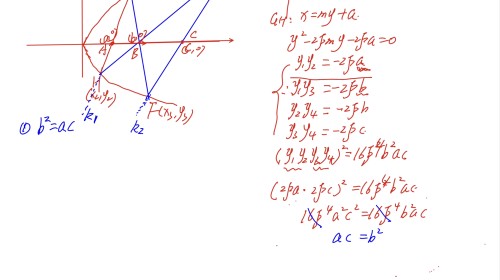 (a,0)
A
(b,0)
B
C
(c,0)
H
(x₂,y₂)
F(x₃,y₃)
k₁
k₂
① b²=ac
GH: x=my+a
y²-2pmy-2pa=0
y₁y₂=-2pa
y₁y₃=-2pb
y₂y₄=-2pb
y₃y₄=-2pc
(y₁y₂y₃y₄)²=16p⁴b²ac
(2pa·2pc)²=16p⁴b²ac
16p⁴a²c²=16p⁴b²ac
ac=b²